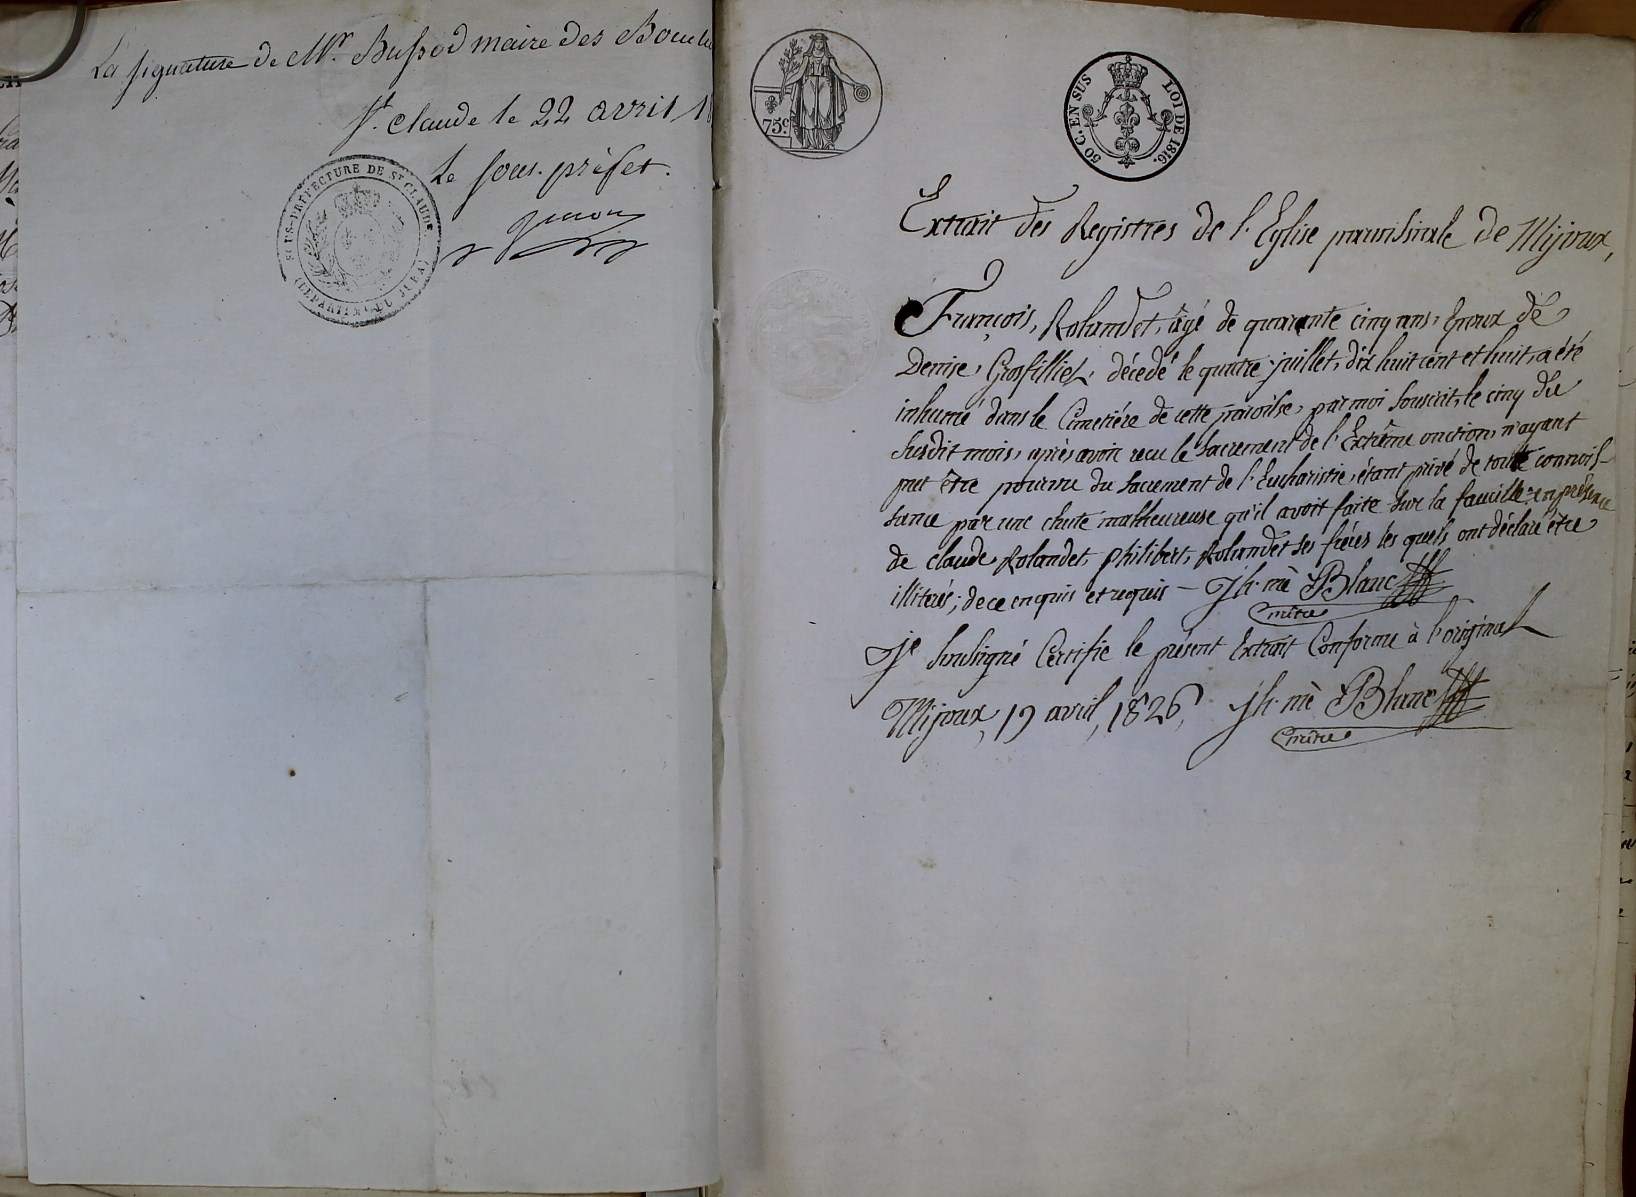 La signature de Mr. Bussod maire des Bouch
St. claude le 22 avril 18
Le sous-préfet.
SOUS-PRÉFECTURE DE ST CLAUDE
(DÉPARTEM.T DU JURA)
75c.
50 C. EN SUS
LOI DE 1816.
Extrait des Registres de l'Eglise paroissiale de Mijoux,
François, Rolandet, âgé de quarante cinq ans, Epoux de
Denise, Grosfilliex, décedé le quatre juillet, dix huit cent et huit, a été
inhumé dans le Cimetiére de cette paroisse, par moi soussit, le cinq du
susdit mois, après avoir recu le sacrement de l'Extrême onction, n'ayant
put être pourvu du sacrement de l'Eucharistie, étant privé de toute connois-
sance par une chute malheureuse qu'il avoit faite sur la faucille: en présence
de claude, Rolandet, philibert, Rolandet ses fréres les quels ont déclaré être
illiterés; de ce enquis et requis - Jh. mè Blanc
Je Soussigné Certifie le présent Extrait Conforme à l'original
Mijoux, 19 avril, 1826, Jh. mè Blanc